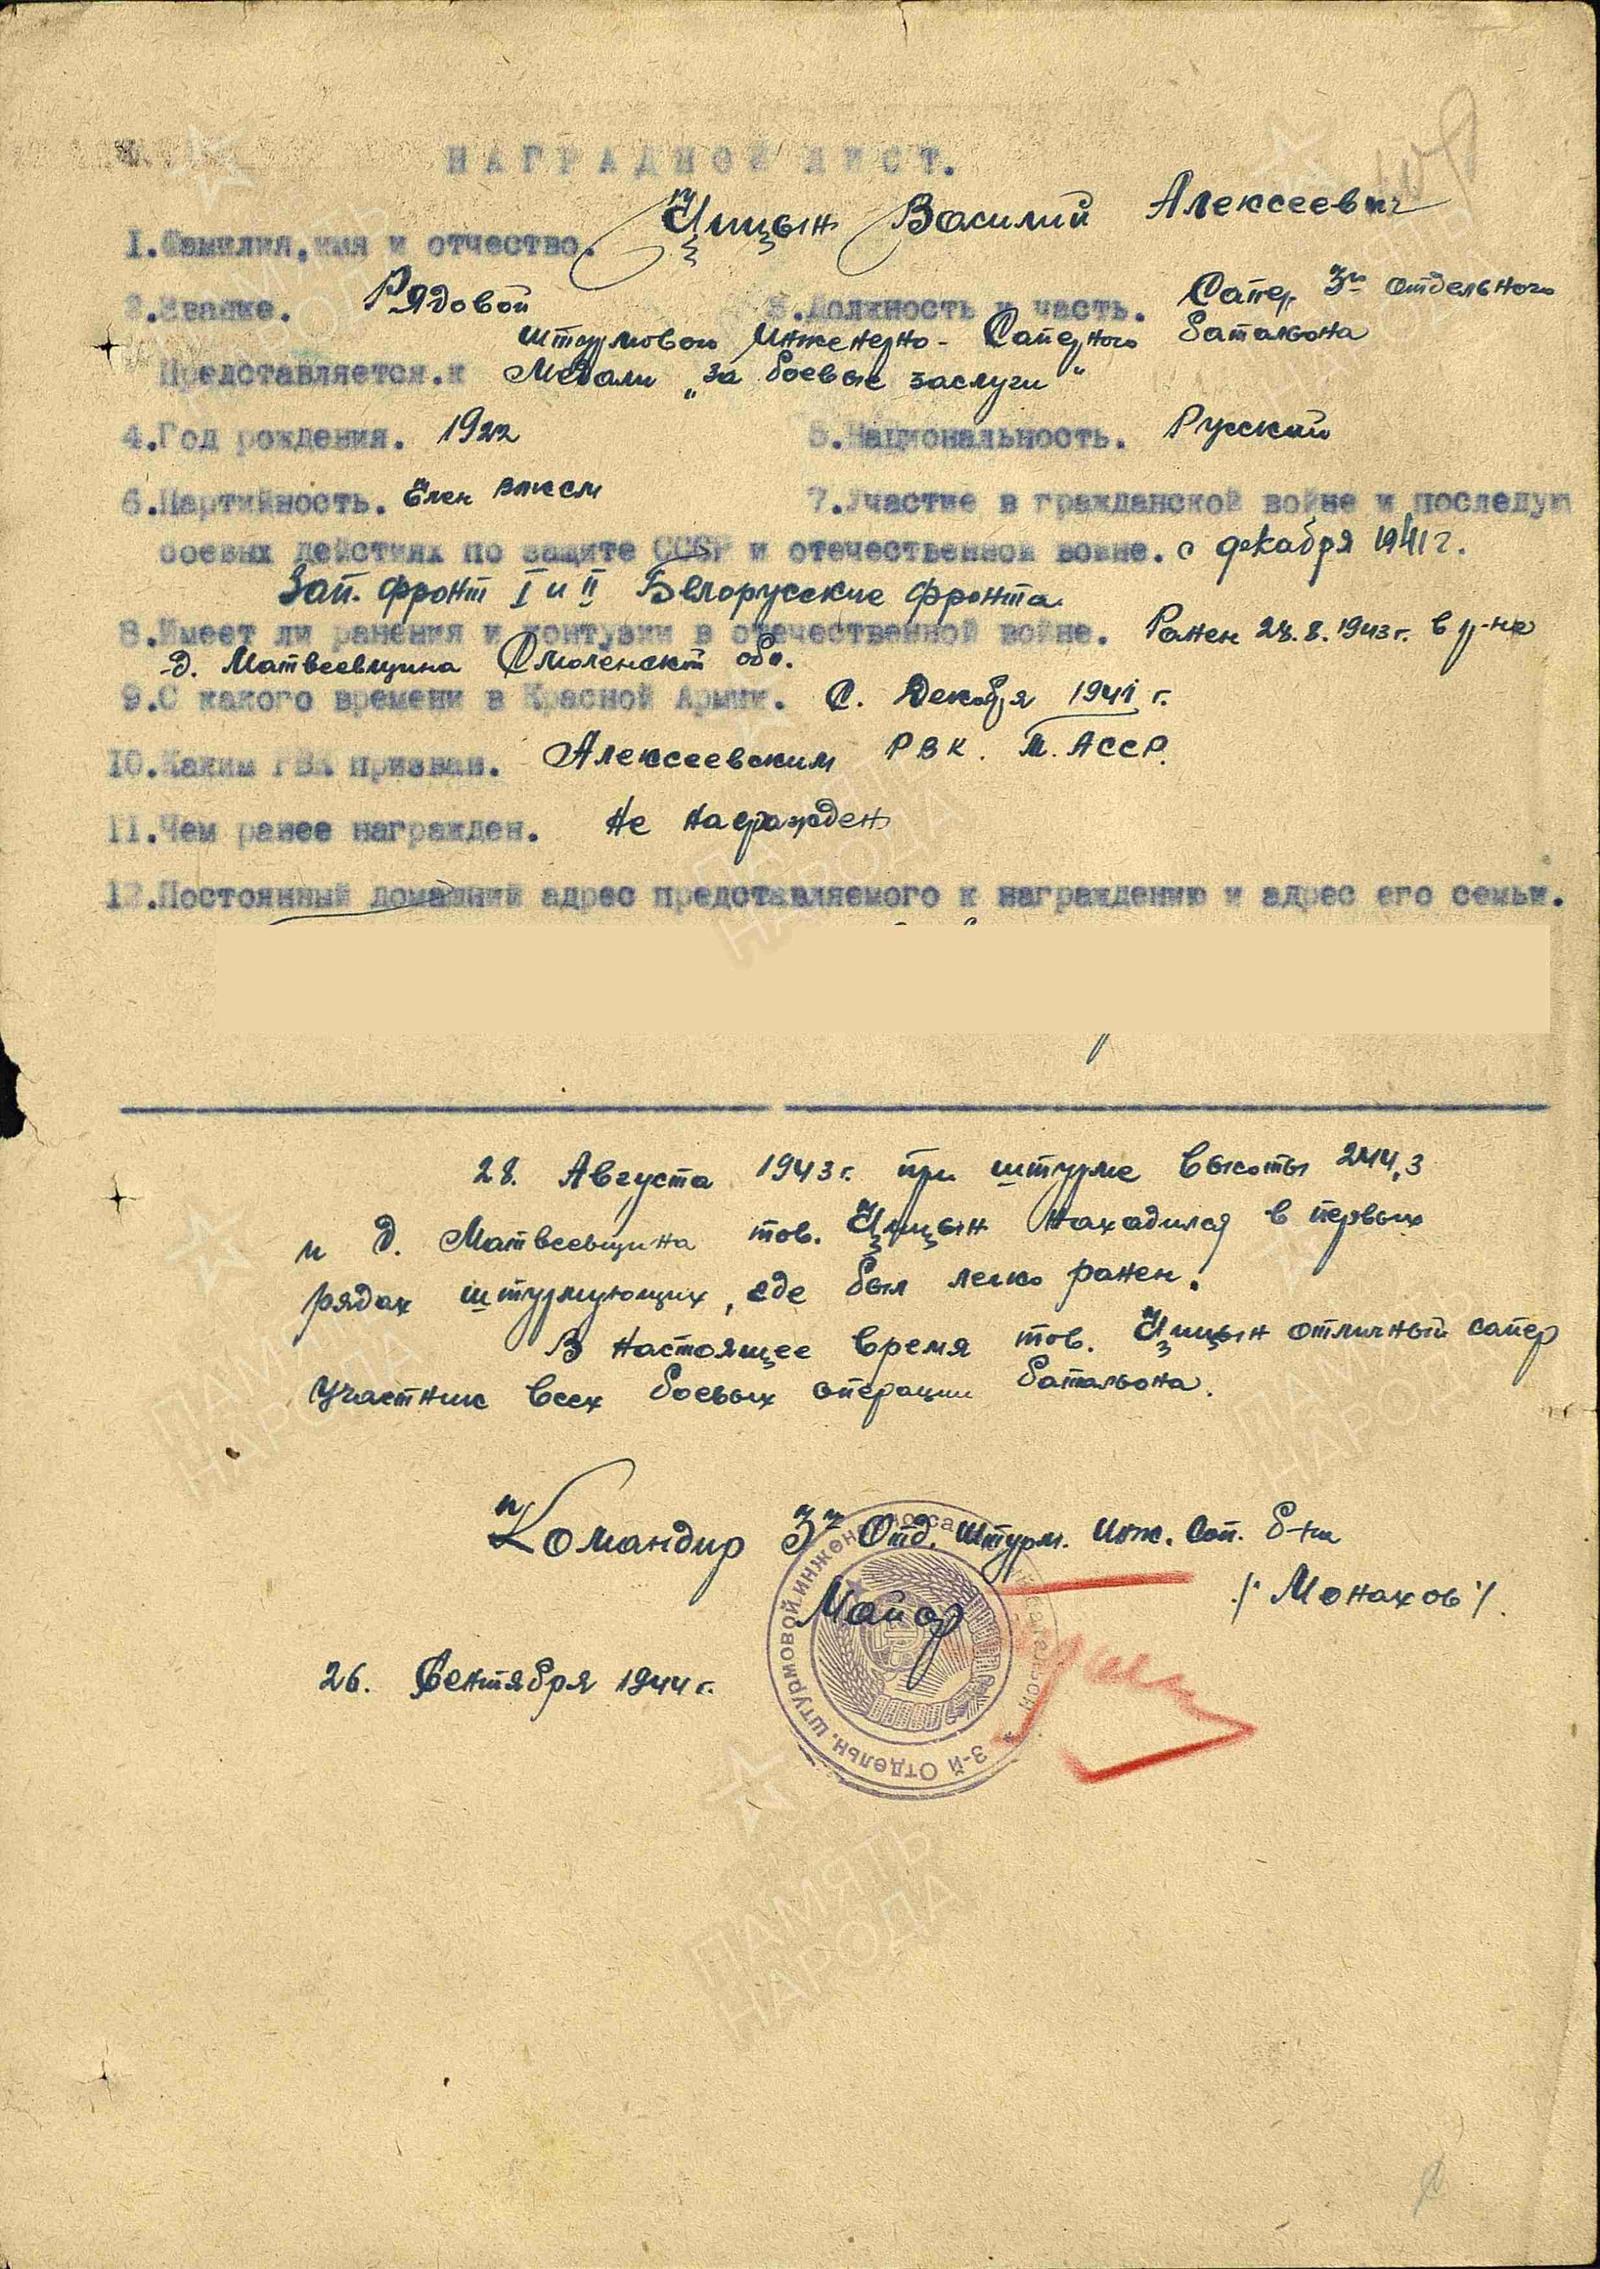 НАГРАДНОЙ ЛИСТ.
1.Фамилия,имя и отчество. Цицын Василий Алексеевич
2.Звание. Рядовой 3.Должность и часть. Сапер 3го отдельного
штурмового Инженерно-Саперного батальона
Представляется.к Медали "За боевые заслуги"
4.Год рождения. 1922 5.Национальность. Русский
6.Партийность. Член ВЛКСМ 7.Участие в гражданской войне и последую
боевых действиях по защите СССР и отечественной войне. с декабря 1941 г.
Зап. фронт I и II Белорусские фронта.
8.Имеет ли ранения и контузии в отечественной войне. Ранен 28.8.1943 г. в р-не
д. Матвеевщина Смоленск обл.
9.С какого времени в Красной Армии. С. Декабря 1941 г.
10.Каким РВК призван. Алексеевским РВК. М. АССР.
11.Чем ранее награжден. Не награжден
12.Постоянный домашний адрес представляемого к награждению и адрес его семьи.
28. Августа 1943 г. при штурме высоты 244,3
и д. Матвеевщина тов. Цицын находился в первых
рядах штурмующих, где был легко ранен.
В настоящее время тов. Цицын отличный сапер
участник всех боевых операции батальона.
Командир 3го Отд. Штурм. Инж. Сап. б-на
Майор /Монахов/.
26. Сентября 1944 г.
3-й Отдельн. штурмовой инженерно-саперный батальон
ПАМЯТЬ НАРОДА